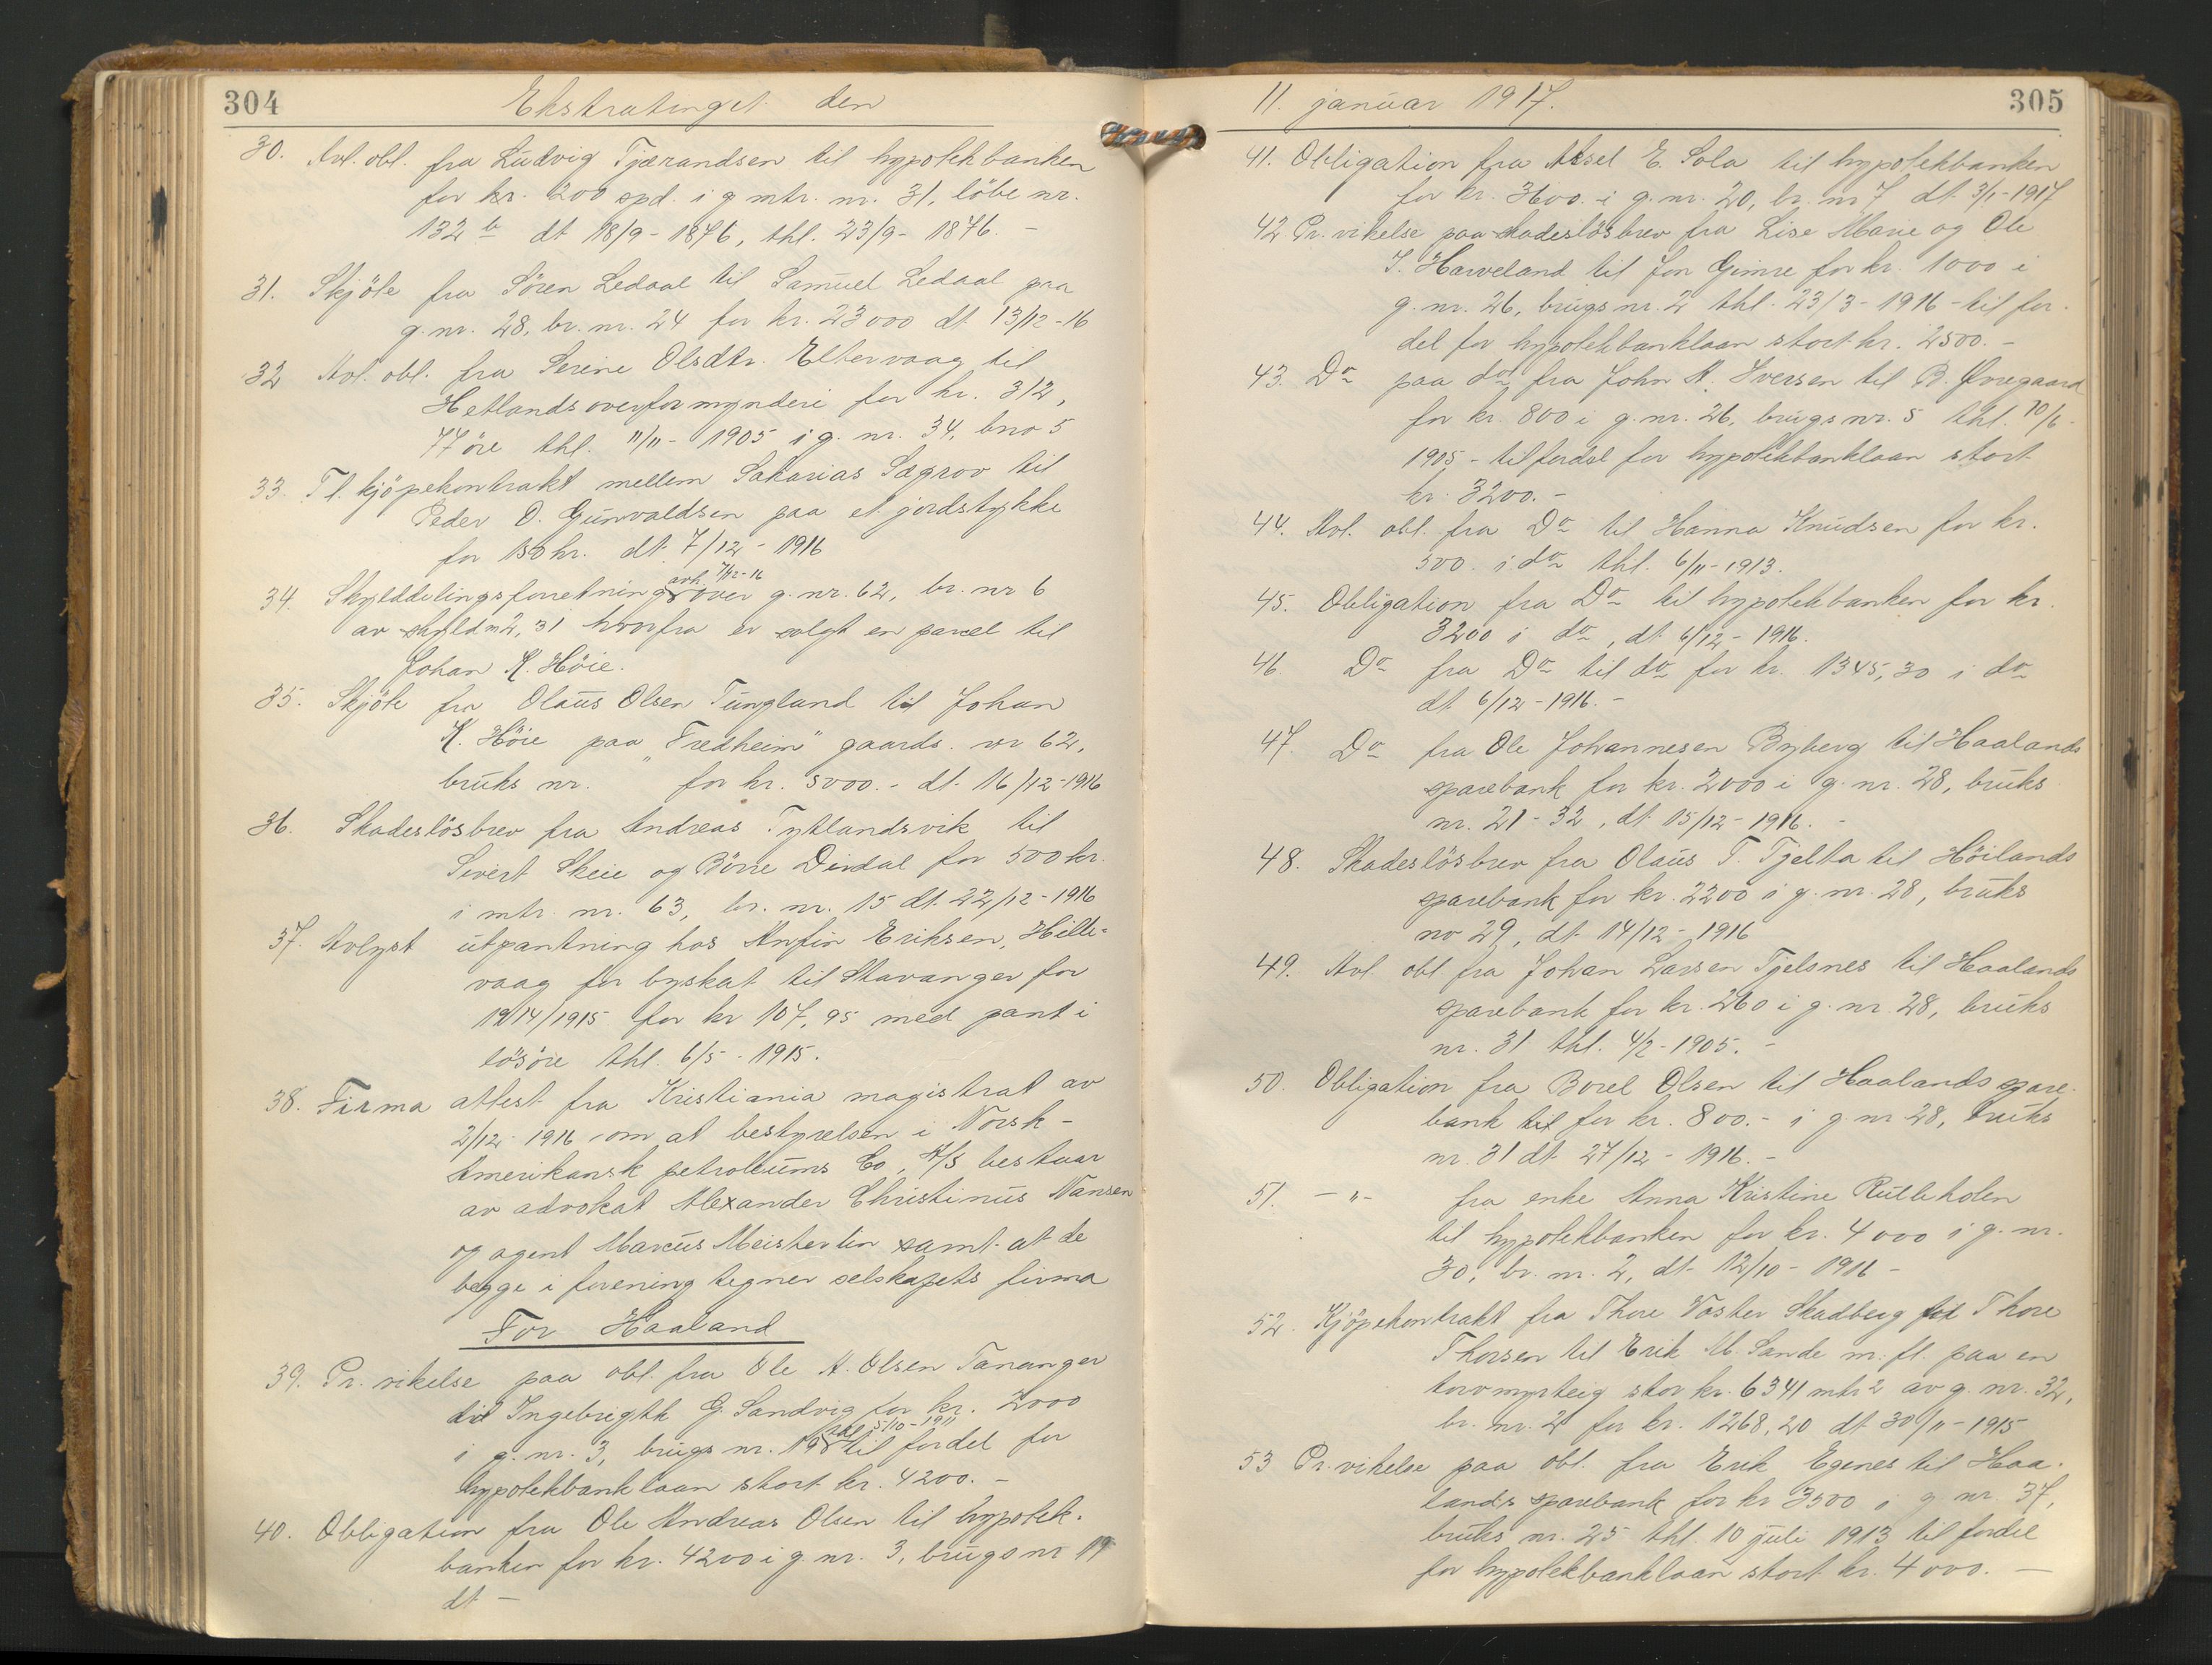 304
Ekstratinget den
30. Avl. obl. fra Ludvig Tjærandsen til hypotekbanken
for kr. 200 spd. i g mtr. nr. 31, löbe nr.
132 b dt 18/9-1876, thl. 23/9-1876. -
31. Skjöte fra Sören Ledaal til Samuel Ledaal paa
g. nr. 28, br. nr. 24 for kr. 23000 dt 13/12-16
32 Avl. obl. fra Serine Olsdtr. Eltervaag til
Hetlands overformynderi for kr. 312,
77 öre thl. 11/11-1905 i g. nr. 34, bno 5
33. Tl. kjöpekontrakt mellem Sakarias Sægrov til
Peder O. Gunvaldsen paa et jordstykke
for 150 kr. dt 7/12-1916
34. Skylddelingsforretning avh. 7/12-16 over g. nr. 62, br. nr 6
av skyld m 2,31 hvorfra er solgt en parcel til
Johan K. Höie.
35. Skjöte fra Olaus Olsen Tungland til Johan
K. Höie paa "Fredheim" gaards. nr 62,
bruks nr. " for kr. 5000.- dt. 16/12-1916
36. Skadeslösbrev fra Andreas Tytlandsvik til
Sivert Skeie og Börre Dirdal for 500 kr.
i mtr. nr. 63, br. nr. 15 dt. 22/12-1916
37. Avlyst utpantning hos Anfin Eriksen, Hille-
vaag for byskat til Stavanger for
1914/1915 for kr 107,95 med pant i
lösöre thl. 6/5-1915.
38. Firma attest fra Kristiania magistrat av
2/12-1916 om at bestyrelsen i Norsk-
Amerikansk petroleums Co, A/S bestaar
av advokat Alexander Christinus Nansen
og agent Marcus Meisterlin samt at de
begge i forening tegner selskapets firma
For Haaland
39. Pr. vikelse paa obl. fra Ole A. Olsen Tananger
til Ingebrigth G. Sandvig for kr. 2000
i g. nr. 3, brugs nr. 19 thl. 5/10-1911 til fordel for
hypotekbanklaan stort kr. 4200.-
40. Obligation fra Ole Andreas Olsen til hypotek-
banken for kr. 4200 i g. nr. 3, brugs nr 19
dt -
11. januar 1917.
305
41. Obligation fra Aksel E. Sola til hypotekbanken
for kr. 3600. i g. nr. 20, br. nr 7 dt. 3/1-1917
42. Pr. vikelse paa skadeslösbrev fra Lise Marie og Ole
J. Harveland til Jon Gimre for kr. 1000 i
g. nr. 26, brugs nr. 2 thl. 23/3-1916 - til for-
del for hypotekbanklaan stort kr. 2500.-
43. Do paa do fra John A. Iversen til B. Øvregaard
for kr. 800 i g. nr. 26, brugs nr. 5 thl. 10/6-
1905 - til fordel for hypotekbanklaan stort
kr. 3200.-
44. Avl. obl. fra Do til Hanna Knudsen for kr.
500. i do thl. 6/11-1913.
45. Obligation fra Do til hypotekbanken for kr.
3200 i do, dt. 6/12-1916.
46. Do fra Do til do for kr. 1345,30 i do
dt 6/12-1916.-
47. Do fra Ole Johannesen Byberg til Haalands
sparebank for kr. 2000 i g. nr. 28, bruks
nr. 21-32, dt. 15/12-1916.-
48. Skadeslösbrev fra Olaus T. Tjelta til Höilands
sparebank for kr. 2200 i g. nr. 28, bruks
no 29, dt. 14/12-1916
49. Avl. obl. fra Johan Larsen Tjelsnes til Haalands
sparebank for kr. 260 i g. nr. 28, bruks
nr. 31 thl. 4/2-1905.-
50. Obligation fra Borel Olsen til Haalands spare-
bank til for kr. 800.- i g. nr 28, bruks
nr. 31 dt 27/12-1916.-
51. -"- fra enke Anna Kristine Rutleholen
til hypotekbanken for kr. 4000 i g. nr.
30, br. nr. 2, dt. 12/10-1916-
52. Kjöpekontrakt fra Thore Vaster Skadberg fol Thore
Thorsen til Erik M. Sande m. fl. paa en
torvmyrteig stor kr. 6341 mtr 2 av g. nr. 32,
br. nr. 2 for kr. 1268,20 dt 30/11-1915
53 Pr. vikelse paa obl. fra Erik Egenes til Haa-
lands sparebank for kr 3500 i g nr. 37,
bruks nr. 25 thl. 10 juli 1913 til fordel
for hypotekbanklaan stort kr. 4000.-